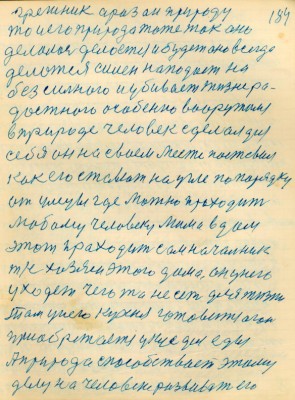 184
грешник сразам природу
то и его природа тоже так оно
делалася делается и будет оно всегда
делается силен нападает на
бессилного и убивает жизнера-
достного особенно вооружон
в природе человек сделал для
себя он на своем месте поставил
как его ставят на угле по порядку
от улицы где можно проходит
любому человеку мимо в дом
этот праходит сам началник
т к хозяин этого дома он у него
уходет чего то несет для жизни
там у него кухня готовится огон
приобретает вкус для еды
А природа способствует этому
делу на человеке развивает его